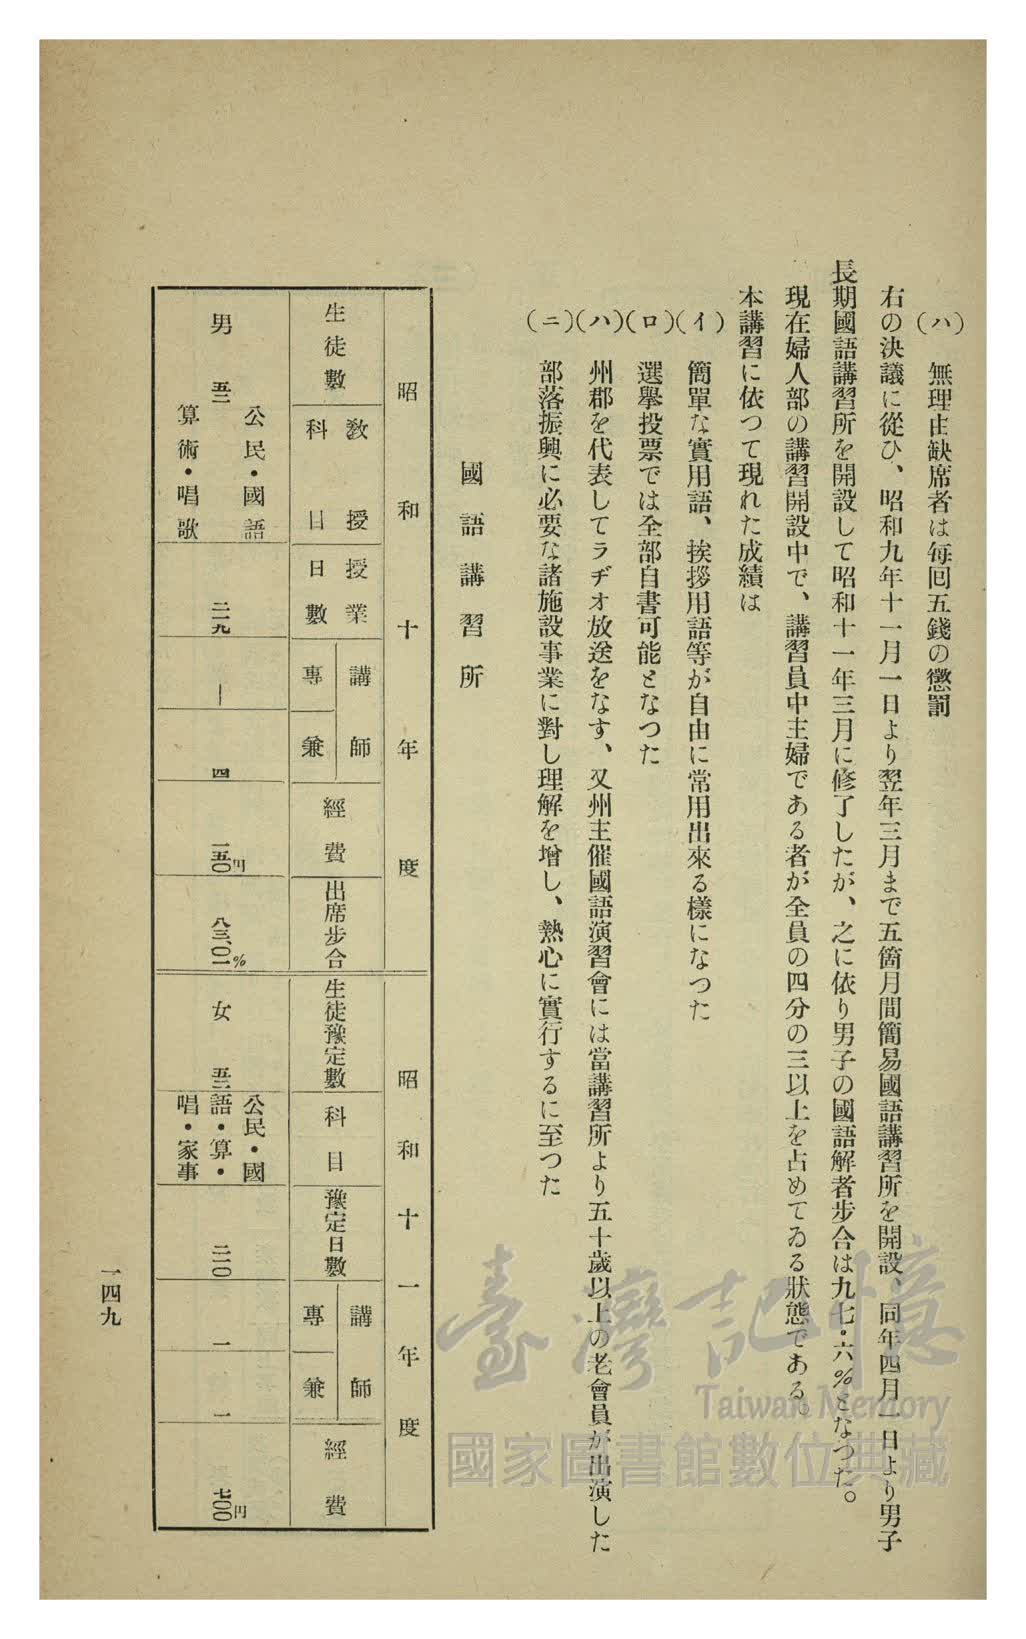 (ハ) 無理由缺席者は每回五錢の懲罰
右の決議に從ひ、昭和九年十一月一日より翌年三月まで五箇月間簡易國語講習所を開設、同年四月一日より男子
長期國語講習所を開設して昭和十一年三月に修了したが、之に依り男子の國語解者步合は九七・六%となつた。
現在婦人部の講習開設中で、講習員中主婦である者が全員の四分の三以上を占めてゐる狀態である。
本講習に依つて現れた成績は
(イ) 簡單な實用語、挨拶用語等が自由に常用出來る樣になつた
(ロ) 選擧投票では全部自書可能となつた
(ハ) 州郡を代表してラヂオ放送をなす、又州主催國語演習會には當講習所より五十歲以上の老會員が出演した
(ニ) 部落振興に必要な諸施設事業に對し理解を增し、熱心に實行するに至つた
國語講習所
昭和十年度
昭和十一年度
生徒數
敎授
科目
授業
日數
講師
專
兼
經費
出席步合
生徒豫定數
科目
豫定日數
講師
專
兼
經費
男
公民・國語
算術・唱歌
二一九
—
四
一五〇円
八三、〇一%
女
公民・國
語・算・
唱・家事
二二〇
一
一
七〇〇円
一四九
臺灣記憶
Taiwan Memory
國家圖書館數位典藏